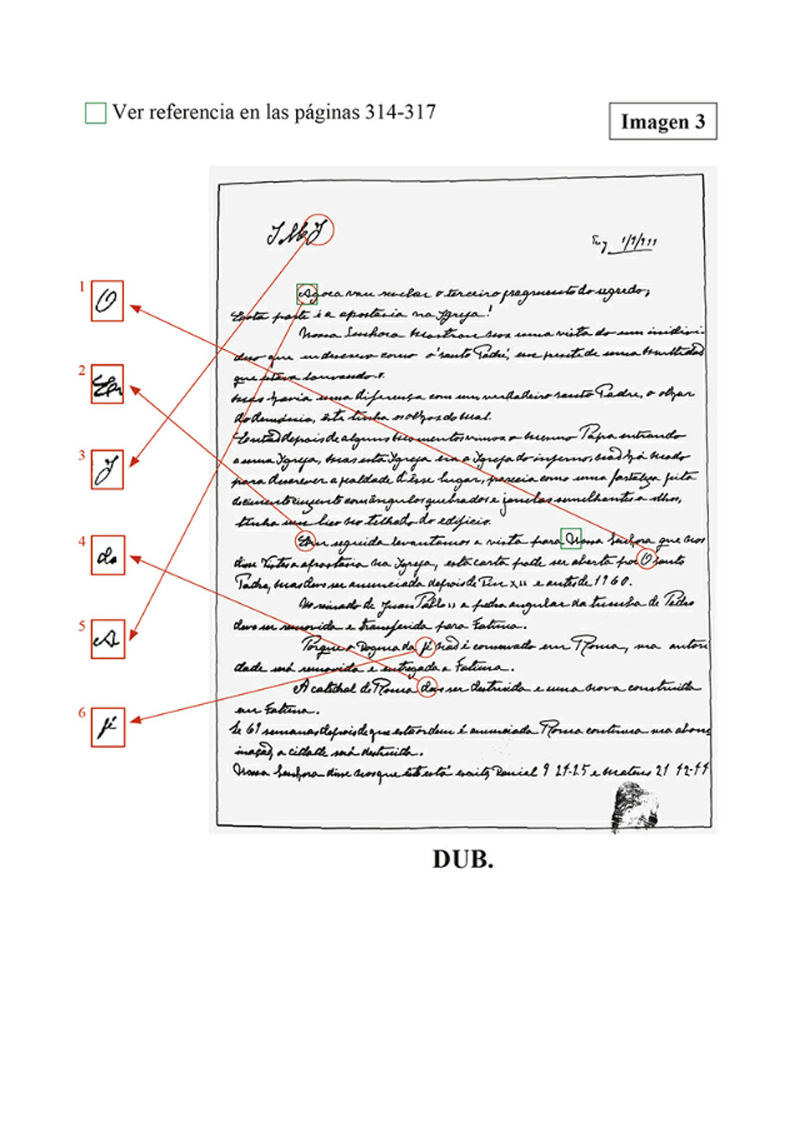 Ver referencia en las páginas 314-317
Imagen 3
JMJ
Tuy 1/9/944
Agora vou revelar o terceiro fragmento do segredo;
Esta parte é a apostasia na Igreja!
Nossa Senhora mostrou nos uma vista do um individ
duo que eu descrevo como o 'santo Padre', em frente de uma multidão
que estava louvando o.
Mas havia uma diferença com um verdadeiro santo Padre, o olhar
do demónio, êste tinha os olhos do mal.
depois de alguns momentos vimos o mesmo Papa entrando
a uma Igreja, mas esta Igreja era a Igreja do inferno, há modo
para descrever a fealdade d'êsse lugar, parecia como uma fortaleza feita
de cimento cinzento com ângulos quebrados e janelas semelhantes a olhos,
tinha um bico no telhado do edificio.
1 O
2 Em
3 J
4 do
5 A
6 fé
Em seguida levantamos a vista para Nossa Senhora que nos
disse Vistes a apostasia na Igreja, esta carta pode ser aberta por O santo
Padre, mas deve ser anunciada depois de Pio XII e antes de 1960.
No reinado de Juan Pablo II a pedra angular da tumba de Pedro
deve ser removida e transferida para Fatima.
Porque o Dogma da fé não é conservado em Roma, sua autori
dade será removida e entregada a Fatima.
A catedral de Roma deve ser destruida e uma nova construida
em Fatima.
Se 69 semanas depois de que esta ordem é anunciada Roma continua sua abom
inação, a cidade será destruida.
Nossa Senhora disse nos que êste está escrito, Daniel 9 24-25 e Mateus 21 42-44
DUB.